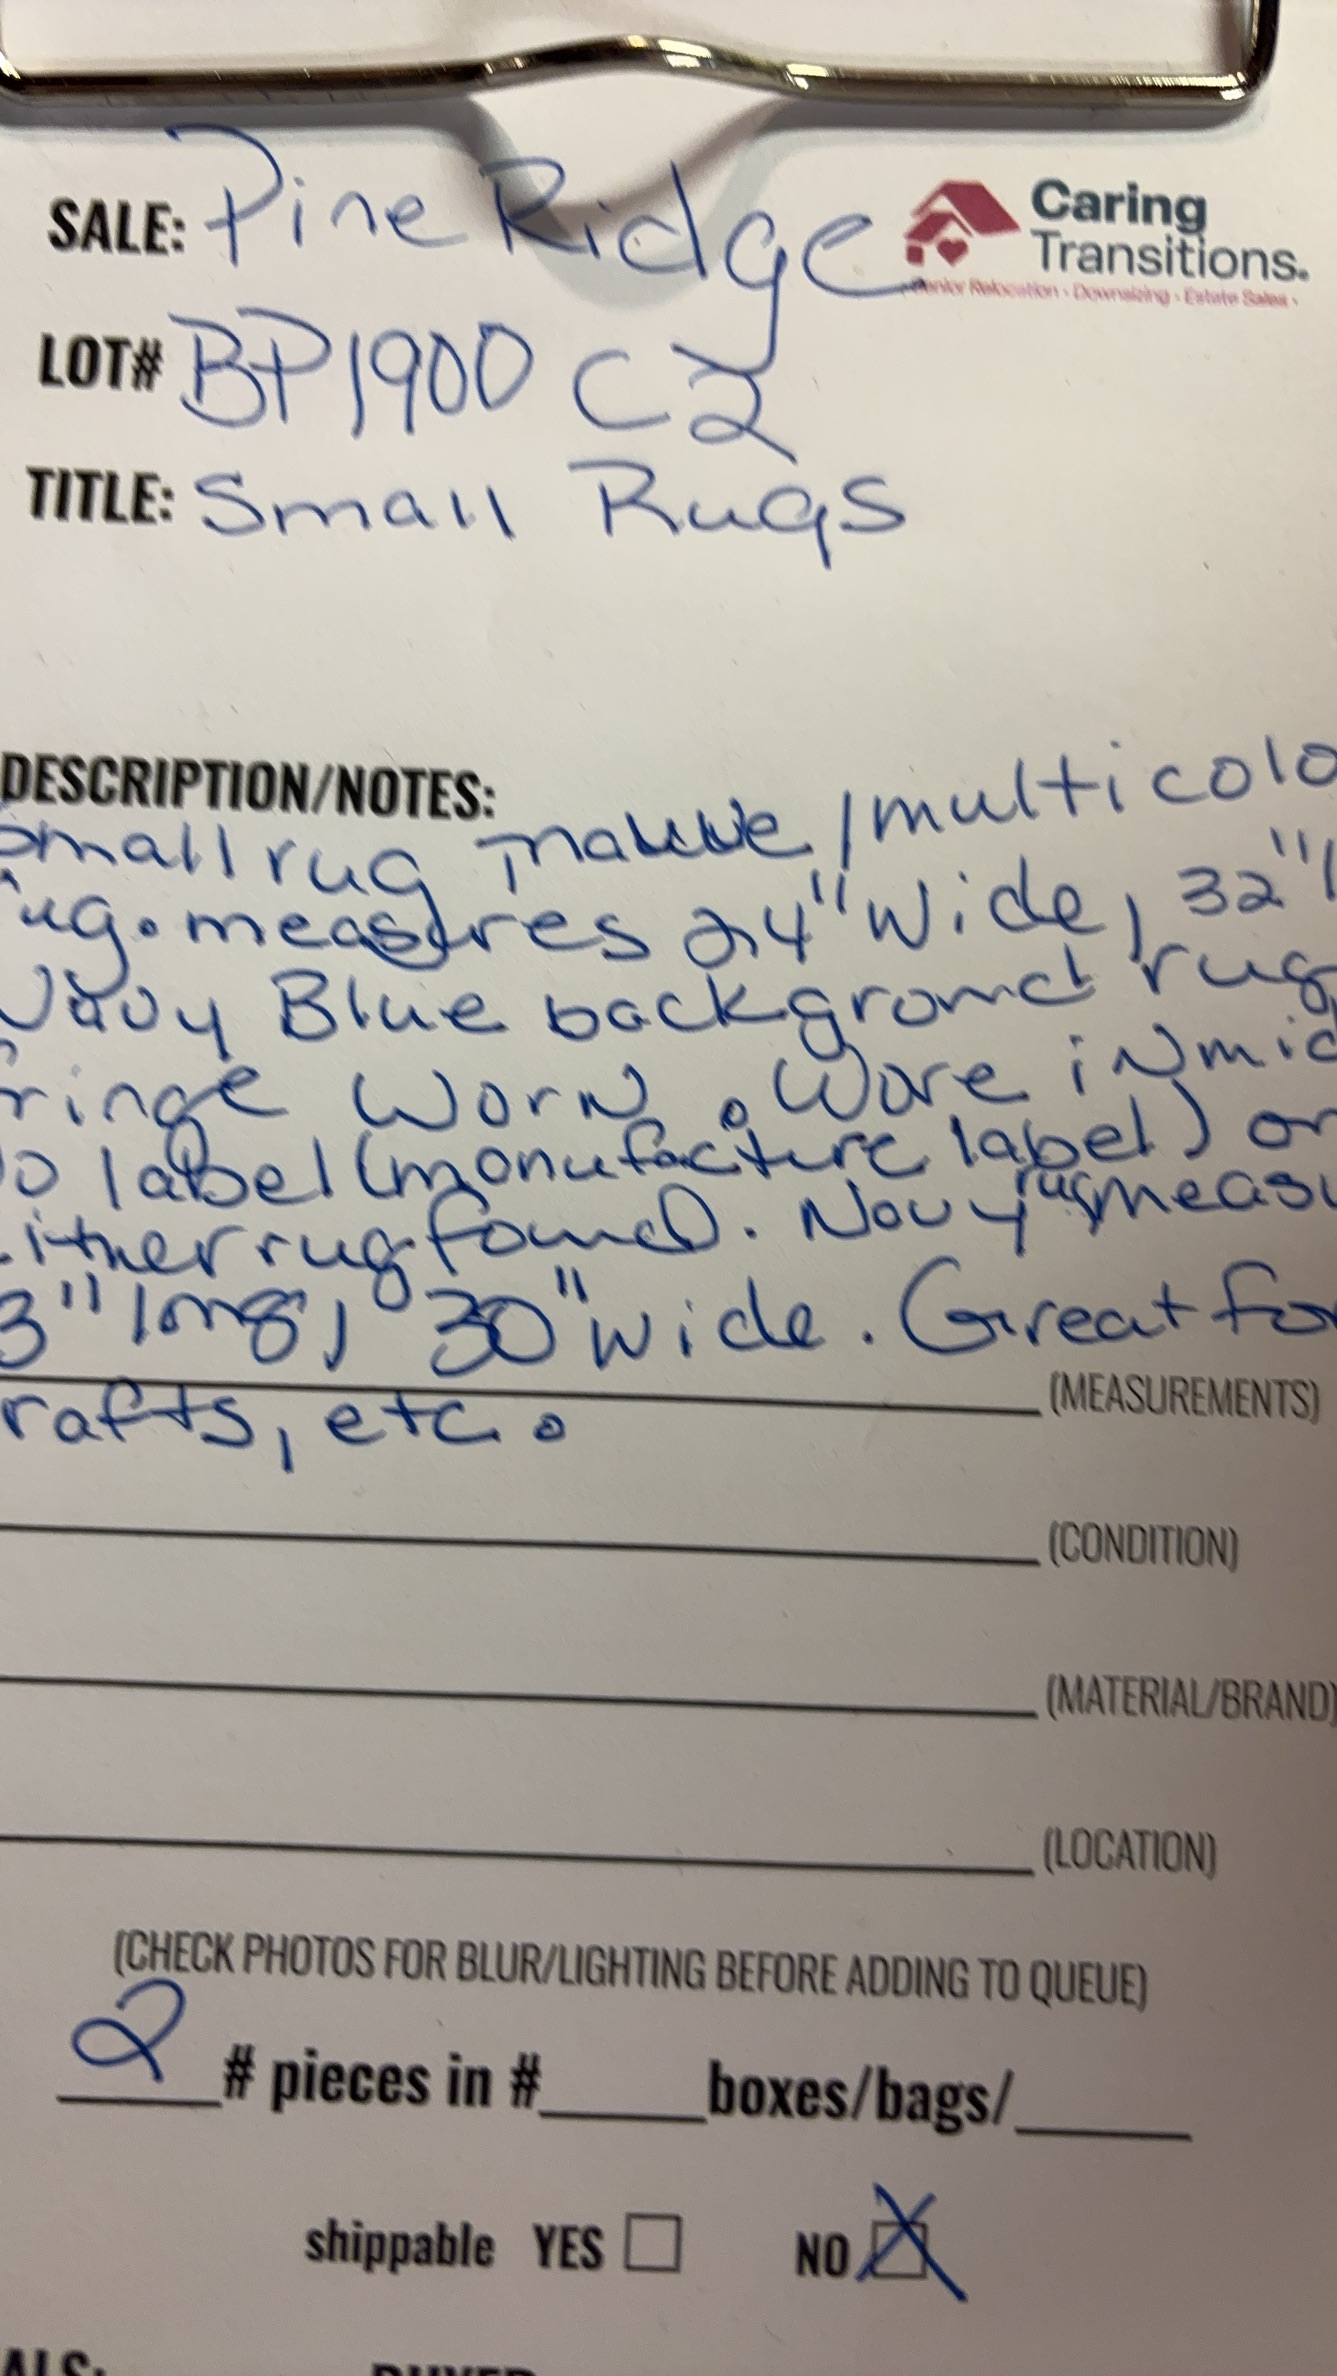 SALE: Pine Ridge
Caring
Transitions.
Senior Relocation · Downsizing · Estate Sales ·
LOT# BP1900 C2
TITLE: Small Rugs
DESCRIPTION/NOTES:
Small rug mauve/multicolo
rug. measures 24" wide, 32" l
Navy Blue background rug
fringe worn. Wore in mid
no label (manufacture label) on
either rug found. Navy rug measu
3" long, 30" wide. Great for
(MEASUREMENTS)
rafts, etc.
(CONDITION)
(MATERIAL/BRAND)
(LOCATION)
(CHECK PHOTOS FOR BLUR/LIGHTING BEFORE ADDING TO QUEUE)
2 # pieces in #_____boxes/bags/_____
shippable YES ☐ NO ☒
ALS: